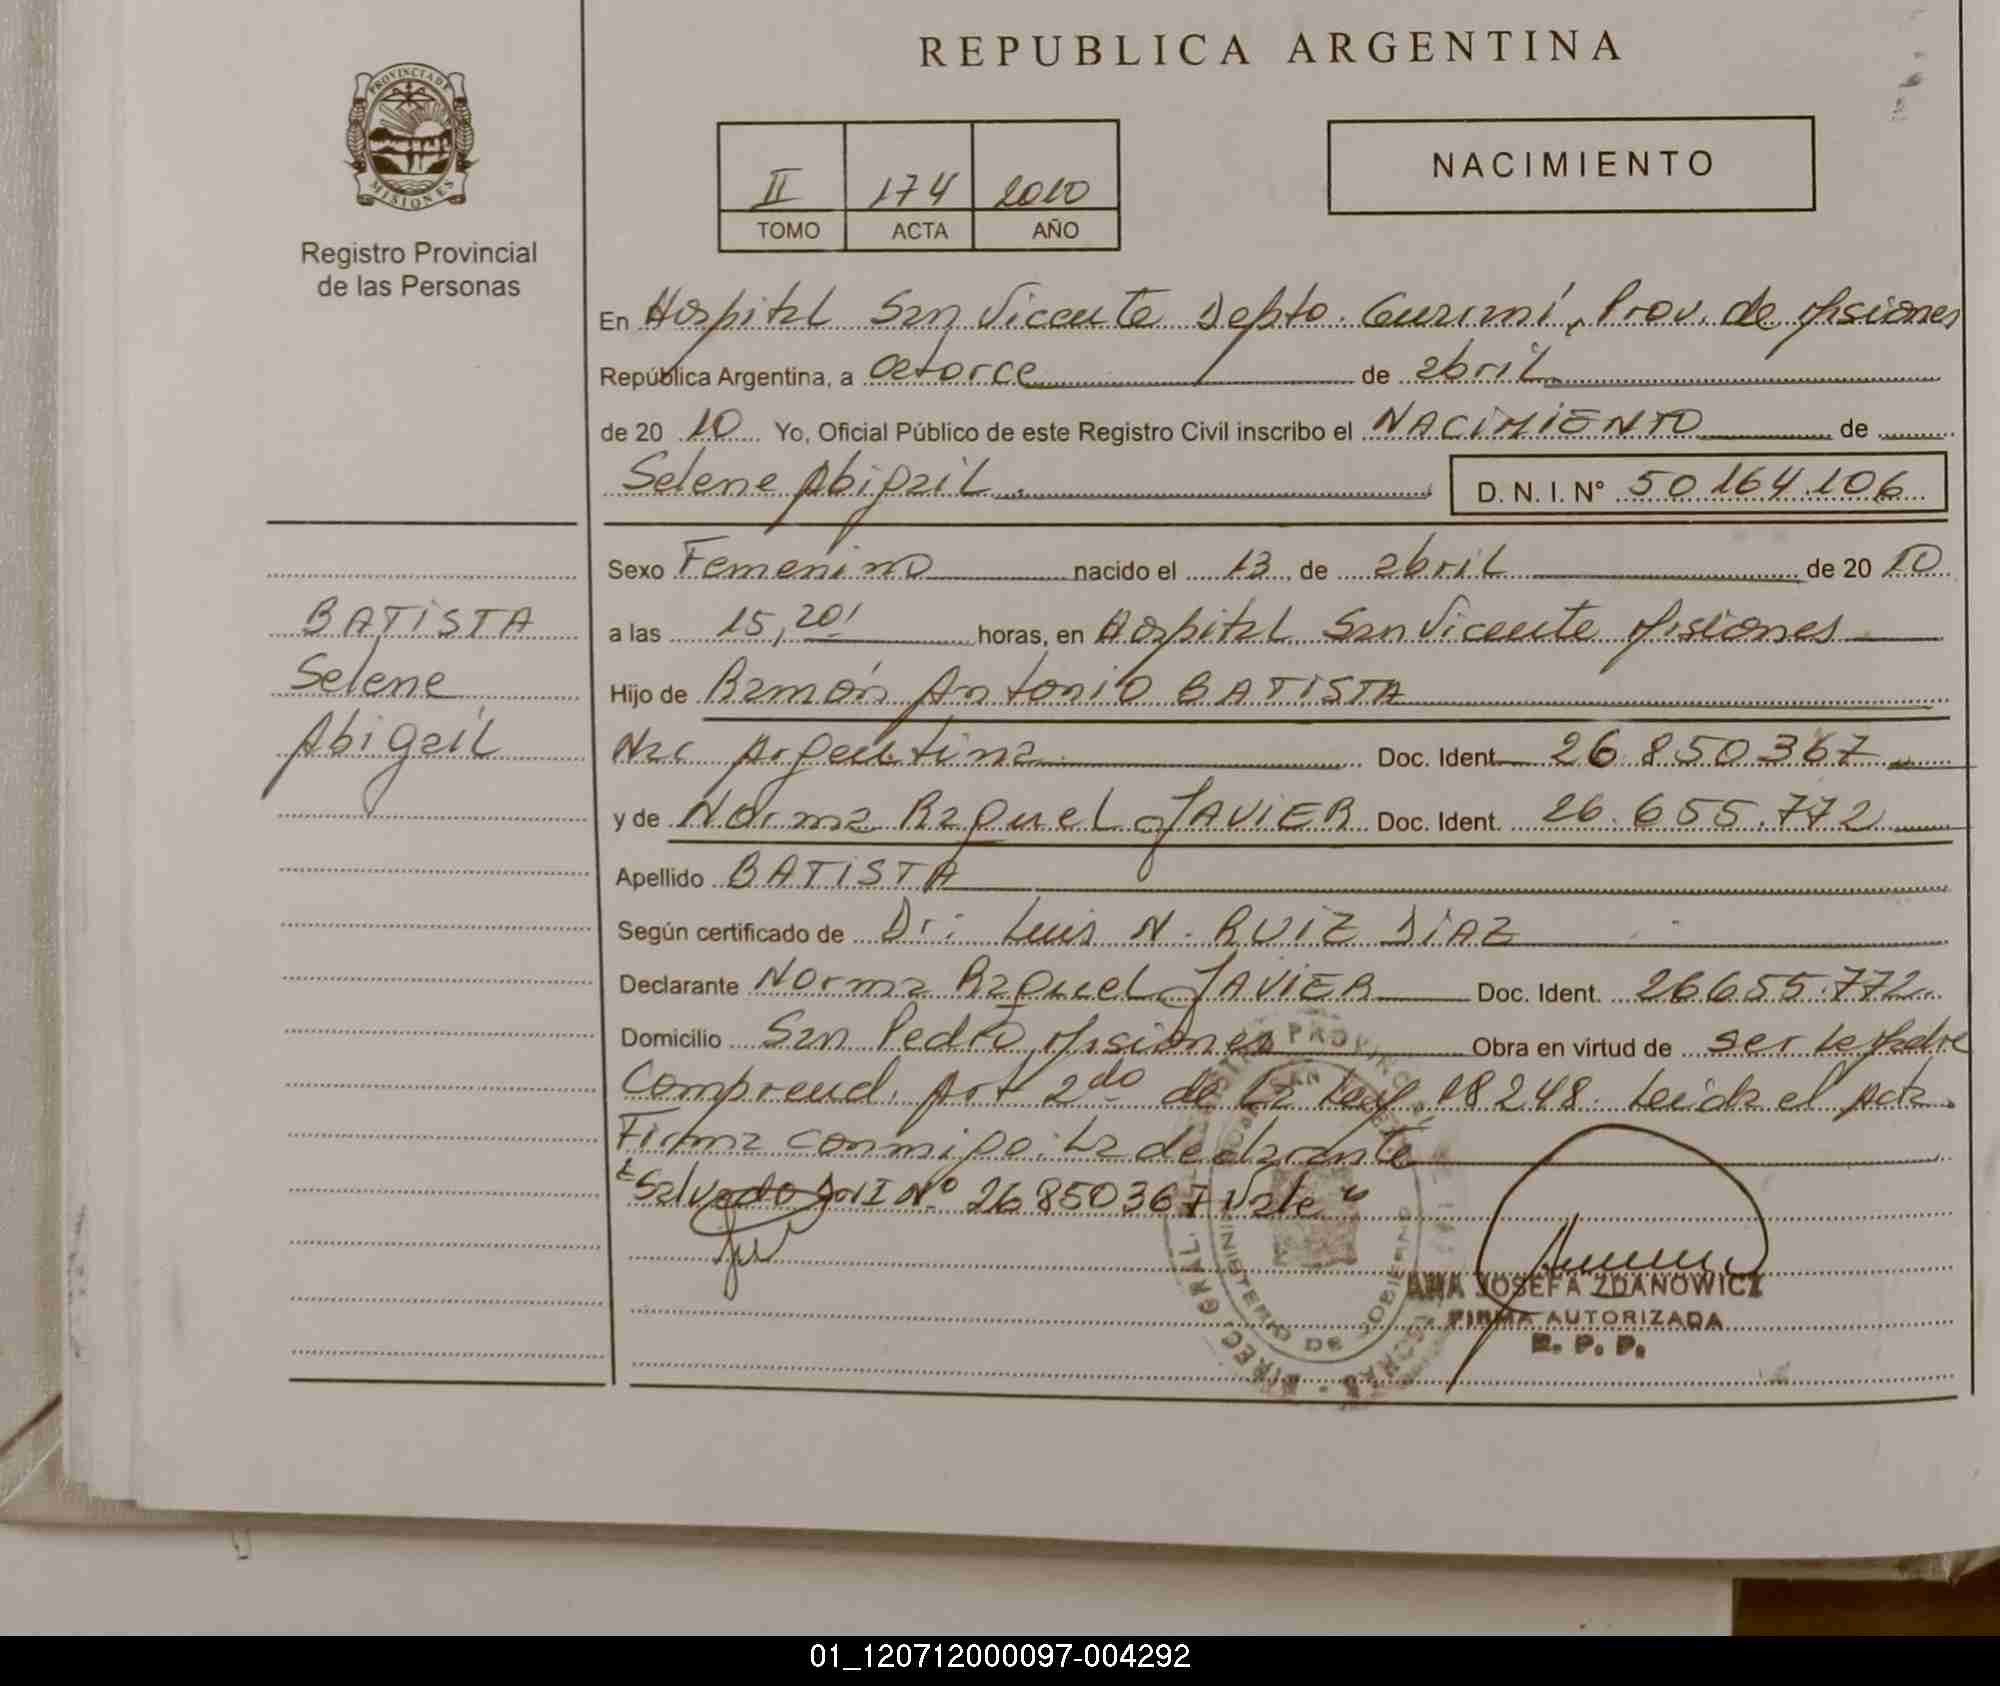 PROVINCIA DE
MISIONES
Registro Provincial
de las Personas
REPUBLICA ARGENTINA
II 174 2010
TOMO ACTA AÑO
NACIMIENTO
En Hospital San Vicente Depto. Guaraní, Prov. de Misiones
República Argentina, a Catorce de abril
de 20 10 Yo, Oficial Público de este Registro Civil inscribo el NACIMIENTO de
Selene Abigail D. N. I. Nº 50.164.106
Sexo Femenino nacido el 13 de abril de 20 10
a las 15,20' horas, en Hospital San Vicente Misiones
Hijo de Ramón Antonio BATISTA
Nac Argentina Doc. Ident. 26.850367
y de Norma Raquel JAVIER Doc. Ident. 26.655.772
Apellido BATISTA
Según certificado de Dr: Luis N. RUIZ DIAZ
Declarante Norma Raquel JAVIER Doc. Ident. 26655.772
Domicilio San Pedro Misiones Obra en virtud de ser la Madre
Comprend. Art 2do de la Ley 18248. Leida el Acta.
Firma conmigo: La declarante
"Salvado DNI Nº 26850367 Vale"
BATISTA
Selene
Abigail
MINISTERIO DE GOBIERNO
ANA JOSEFA ZDANOWICZ
FIRMA AUTORIZADA
R. P. P.
01_120712000097-004292